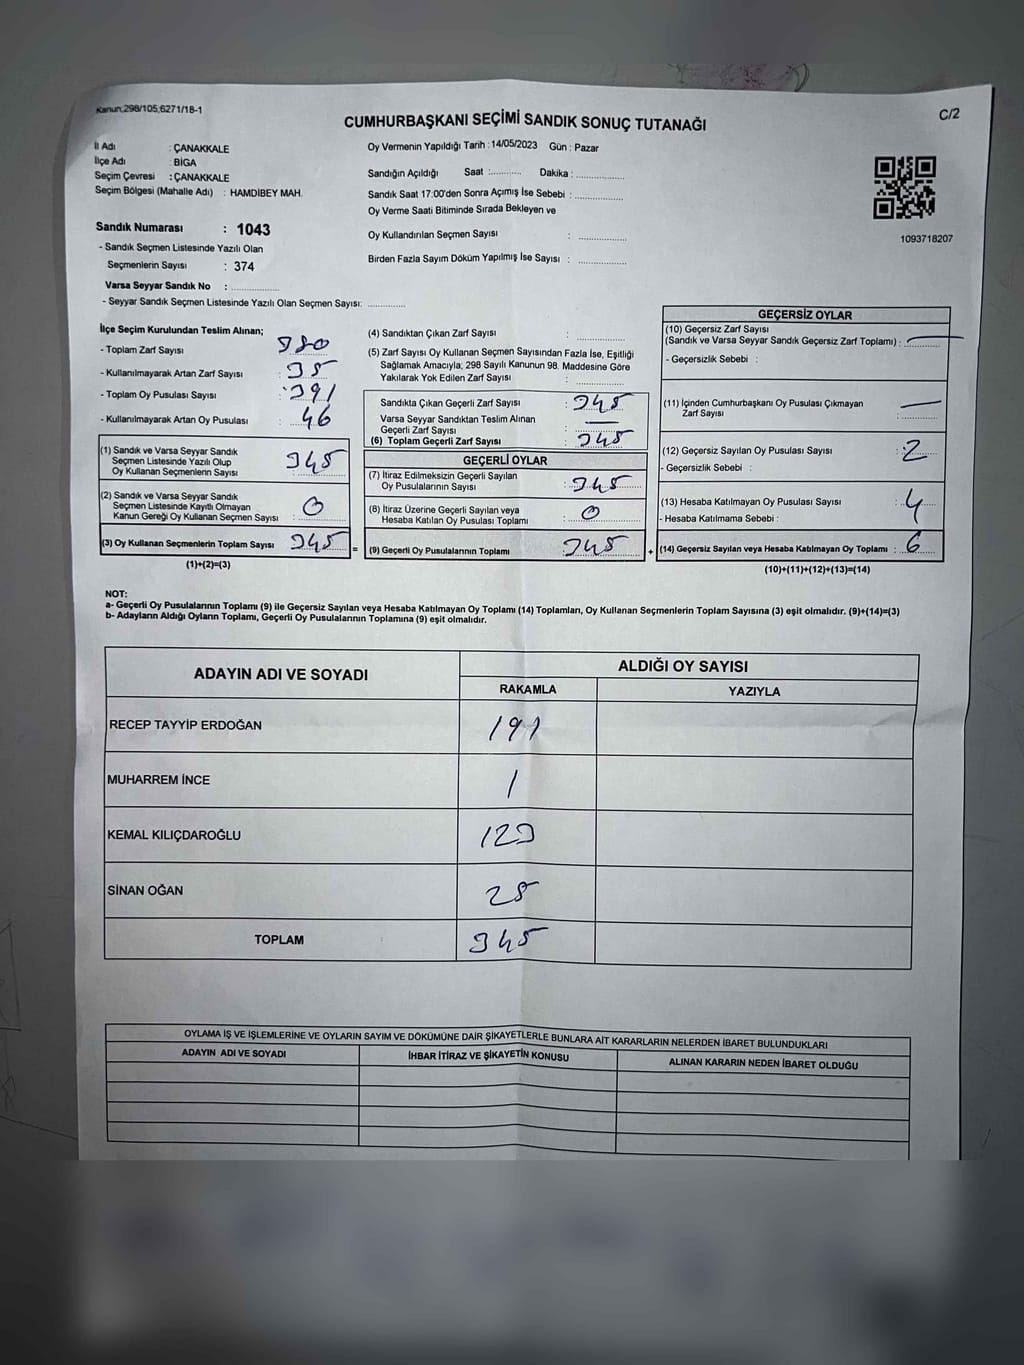 Kanun:298/105,6271/18-1
C/2
CUMHURBAŞKANI SEÇİMİ SANDIK SONUÇ TUTANAĞI
İl Adı : ÇANAKKALE
İlçe Adı : BİGA
Seçim Çevresi : ÇANAKKALE
Seçim Bölgesi (Mahalle Adı) : HAMDİBEY MAH.
Oy Vermenin Yapıldığı Tarih : 14/05/2023 Gün : Pazar
Sandığın Açıldığı Saat :........... Dakika :..............
Sandık Saat 17:00'den Sonra Açımış İse Sebebi :..............
Oy Verme Saati Bitiminde Sırada Bekleyen ve
Oy Kullandırılan Seçmen Sayısı :..............
Birden Fazla Sayım Döküm Yapılmış İse Sayısı :..............
1093718207
Sandık Numarası : 1043
- Sandık Seçmen Listesinde Yazılı Olan
Seçmenlerin Sayısı : 374
Varsa Seyyar Sandık No :..............
- Seyyar Sandık Seçmen Listesinde Yazılı Olan Seçmen Sayısı:...........
İlçe Seçim Kurulundan Teslim Alınan;
- Toplam Zarf Sayısı : 380
- Kullanılmayarak Artan Zarf Sayısı : 35
- Toplam Oy Pusulası Sayısı : 391
- Kullanılmayarak Artan Oy Pusulası : 46
(1) Sandık ve Varsa Seyyar Sandık
Seçmen Listesinde Yazılı Olup
Oy Kullanan Seçmenlerin Sayısı : 345
(2) Sandık ve Varsa Seyyar Sandık
Seçmen Listesinde Kayıtlı Olmayan
Kanun Gereği Oy Kullanan Seçmen Sayısı : 0
(3) Oy Kullanan Seçmenlerin Toplam Sayısı 345 =
(1)+(2)=(3)
(4) Sandıktan Çıkan Zarf Sayısı :..............
(5) Zarf Sayısı Oy Kullanan Seçmen Sayısından Fazla İse, Eşitliği
Sağlamak Amacıyla; 298 Sayılı Kanunun 98. Maddesine Göre
Yakılarak Yok Edilen Zarf Sayısı :..............
Sandıkta Çıkan Geçerli Zarf Sayısı : 345
Varsa Seyyar Sandıktan Teslim Alınan
Geçerli Zarf Sayısı : —
(6) Toplam Geçerli Zarf Sayısı : 345
GEÇERLİ OYLAR
(7) İtiraz Edilmeksizin Geçerli Sayılan
Oy Pusulalarının Sayısı : 345
(8) İtiraz Üzerine Geçerli Sayılan veya
Hesaba Katılan Oy Pusulası Toplamı : 0
(9) Geçerli Oy Pusulalarının Toplamı : 345 +
GEÇERSİZ OYLAR
(10) Geçersiz Zarf Sayısı
(Sandık ve Varsa Seyyar Sandık Geçersiz Zarf Toplamı) : —
- Geçersizlik Sebebi :
(11) İçinden Cumhurbaşkanı Oy Pusulası Çıkmayan
Zarf Sayısı : —
(12) Geçersiz Sayılan Oy Pusulası Sayısı : 2
- Geçersizlik Sebebi :
(13) Hesaba Katılmayan Oy Pusulası Sayısı : 4
- Hesaba Katılmama Sebebi :
(14) Geçersiz Sayılan veya Hesaba Katılmayan Oy Toplamı : 6
(10)+(11)+(12)+(13)=(14)
NOT:
a- Geçerli Oy Pusulalarının Toplamı (9) ile Geçersiz Sayılan veya Hesaba Katılmayan Oy Toplamı (14) Toplamları, Oy Kullanan Seçmenlerin Toplam Sayısına (3) eşit olmalıdır. (9)+(14)=(3)
b- Adayların Aldığı Oyların Toplamı, Geçerli Oy Pusulalarının Toplamına (9) eşit olmalıdır.
ADAYIN ADI VE SOYADI
ALDIĞI OY SAYISI
RAKAMLA YAZIYLA
RECEP TAYYİP ERDOĞAN 191
MUHARREM İNCE 1
KEMAL KILIÇDAROĞLU 123
SİNAN OĞAN 28
TOPLAM 345
OYLAMA İŞ VE İŞLEMLERİNE VE OYLARIN SAYIM VE DÖKÜMÜNE DAİR ŞİKAYETLERLE BUNLARA AİT KARARLARIN NELERDEN İBARET BULUNDUKLARI
ADAYIN ADI VE SOYADI İHBAR İTİRAZ VE ŞİKAYETİN KONUSU ALINAN KARARIN NEDEN İBARET OLDUĞU